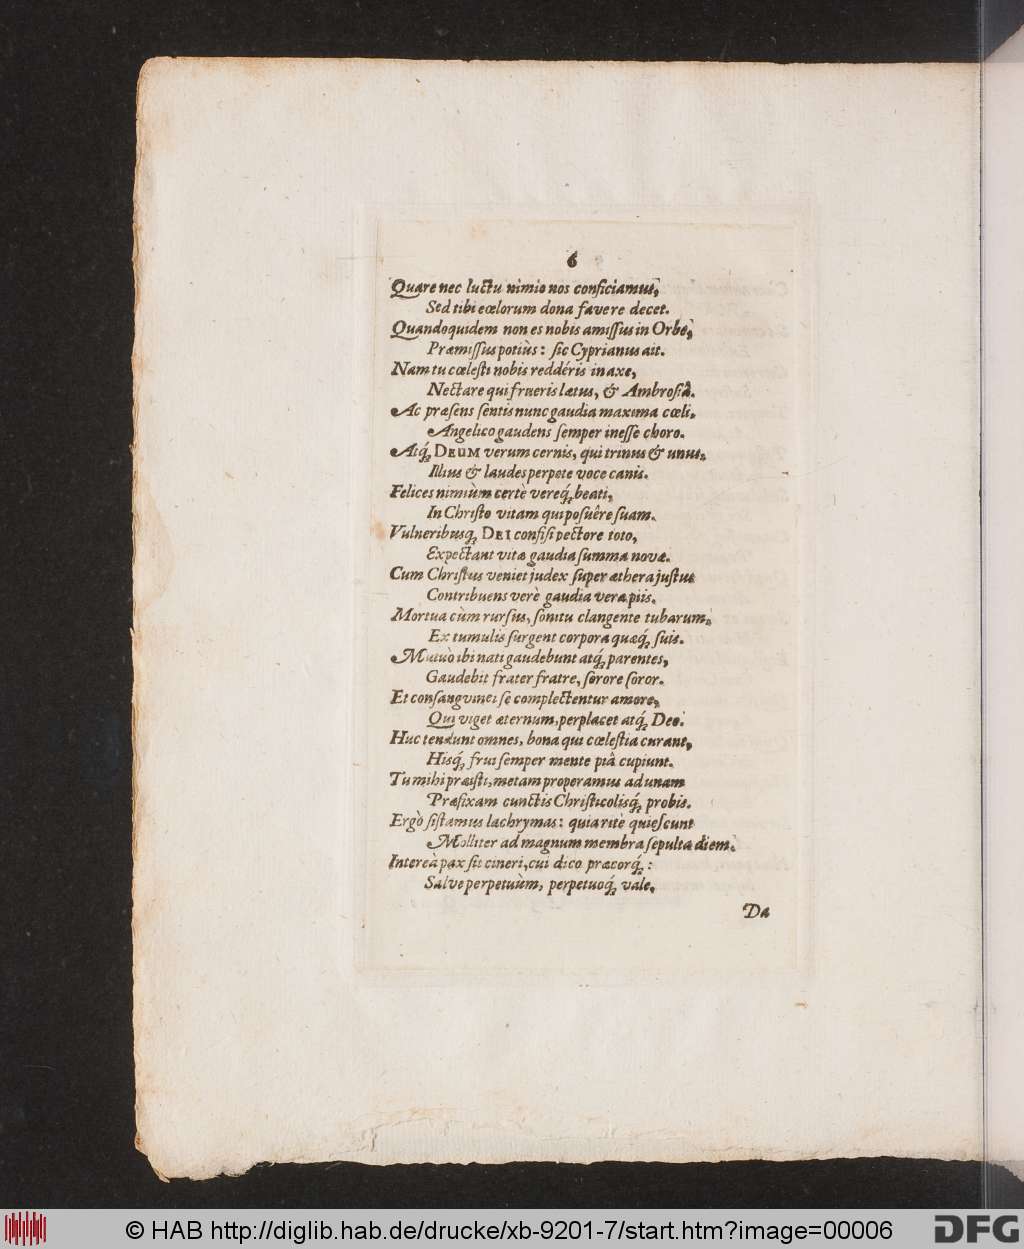 6
Quare nec luctu nimio nos conficiamus,
Sed tibi cœlorum dona favere decet.
Quandoquidem non es nobis amissus in Orbe,
Præmissus potiùs: sic Cyprianus ait.
Nam tu cœlesti nobis reddêris in axe,
Nectare qui frueris lætus, & Ambrosiâ.
Ac præsens sentis nunc gaudia maxima cœli,
Angelico gaudens semper inesse choro.
Atq; DEUM verum cernis, qui trinus & unus,
Illius & laudes perpete voce canis.
Felices nimiùm certè vereq; beati,
In Christo vitam qui posuêre suam.
Vulneribusq; DEI confisi pectore toto,
Expectant vitæ gaudia summa novæ.
Cum Christus veniet judex super æthera justus
Contribuens verè gaudia vera piis.
Mortua cùm rursus, sonitu clangente tubarum,
Ex tumulis surgent corpora quæq; suis.
Mutuò ibi nati gaudebunt atq; parentes,
Gaudebit frater fratre, sorore soror.
Et consangvinei se complectentur amore,
Qui viget æternum, perplacet atq; Deo.
Huc tendunt omnes, bona qui cœlestia curant,
Hisq; frui semper mente piâ cupiunt.
Tu mihi præisti, metam properamus ad unam
Præfixam cunctis Christicolisq; probis.
Ergò sistamus lachrymas: quia ritè quiescunt
Molliter ad magnum membra sepulta diem.
Intereà pax sit cineri, cui dico præcorq;:
Salve perpetuùm, perpetuoq; vale.
Da
© HAB http://diglib.hab.de/drucke/xb-9201-7/start.htm?image=00006
DFG